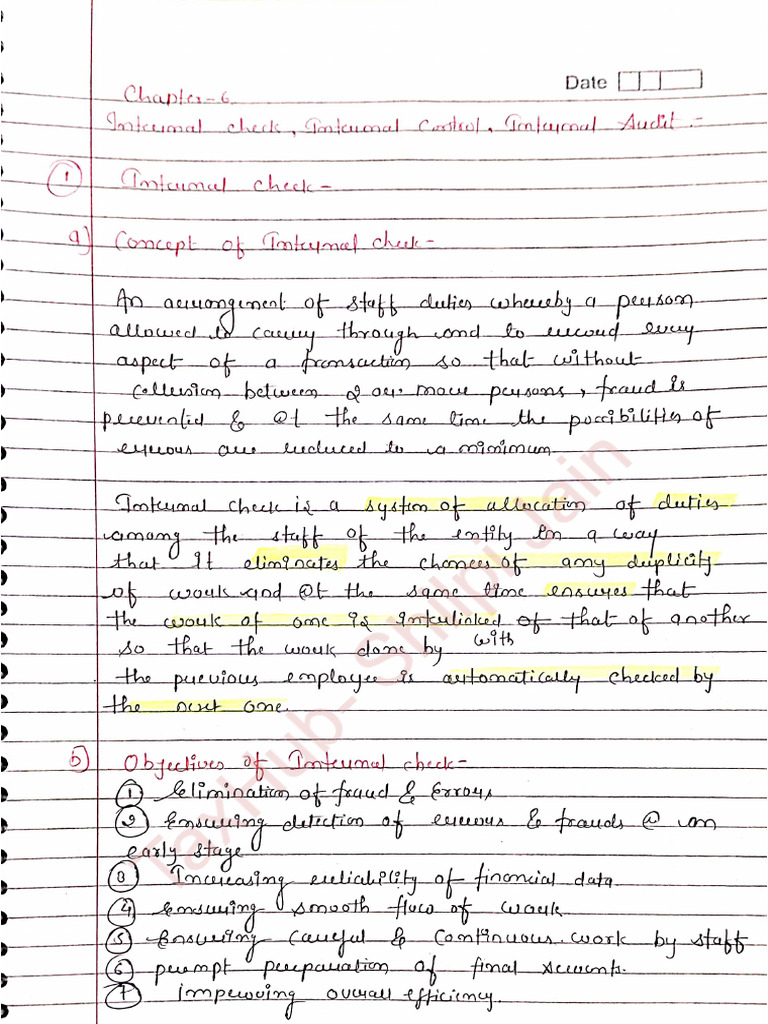 Date
Chapter-6
Internal check, Internal Control, Internal Audit :-
1 Internal check -
a) Concept of Internal check -
An arrangement of staff duties whereby a person
allowed to carry through and to record every
aspect of a transaction so that without
collusion between 2 or more persons, fraud is
prevented & @ the same time the possibilities of
errors are reduced to a minimum.
Internal check is a system of allocation of duties
among the staff of the entity in a way
that it eliminates the chances of any duplicity
of work and @ the same time ensures that
the work of one is interlinked of that of another
with
so that the work done by
the previous employee is automatically checked by
the next one.
b) Objectives of Internal check -
1 Elimination of fraud & Errors
2 Ensuring detection of errors & frauds @ an
early stage
3 Increasing reliability of financial data.
4 Ensuring smooth flow of work
5 Ensuring careful & continuous work by staff
6 prompt preparation of final accounts.
7 improving overall efficiency.
TaxHub- Shilpi Jain